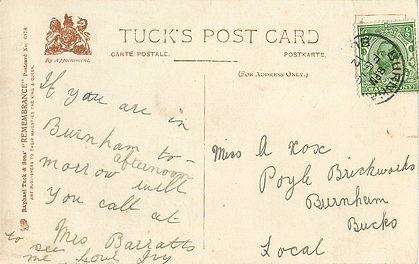 TUCK'S POST CARD
CARTE POSTALE.
POSTKARTE.
By Appointment.
(FOR ADDRESS ONLY.)
Raphael Tuck & Sons' "REMEMBRANCE" Postcard No.
ART PUBLISHERS TO THEIR MAJESTIES THE KING & QUEEN.
If you are in
Burnham to-
morrow afternoon will
you call at
Mrs Barratts
to see
me love Ivy
Miss A Cox
Poyle Brickworks
Burnham
Bucks
Local